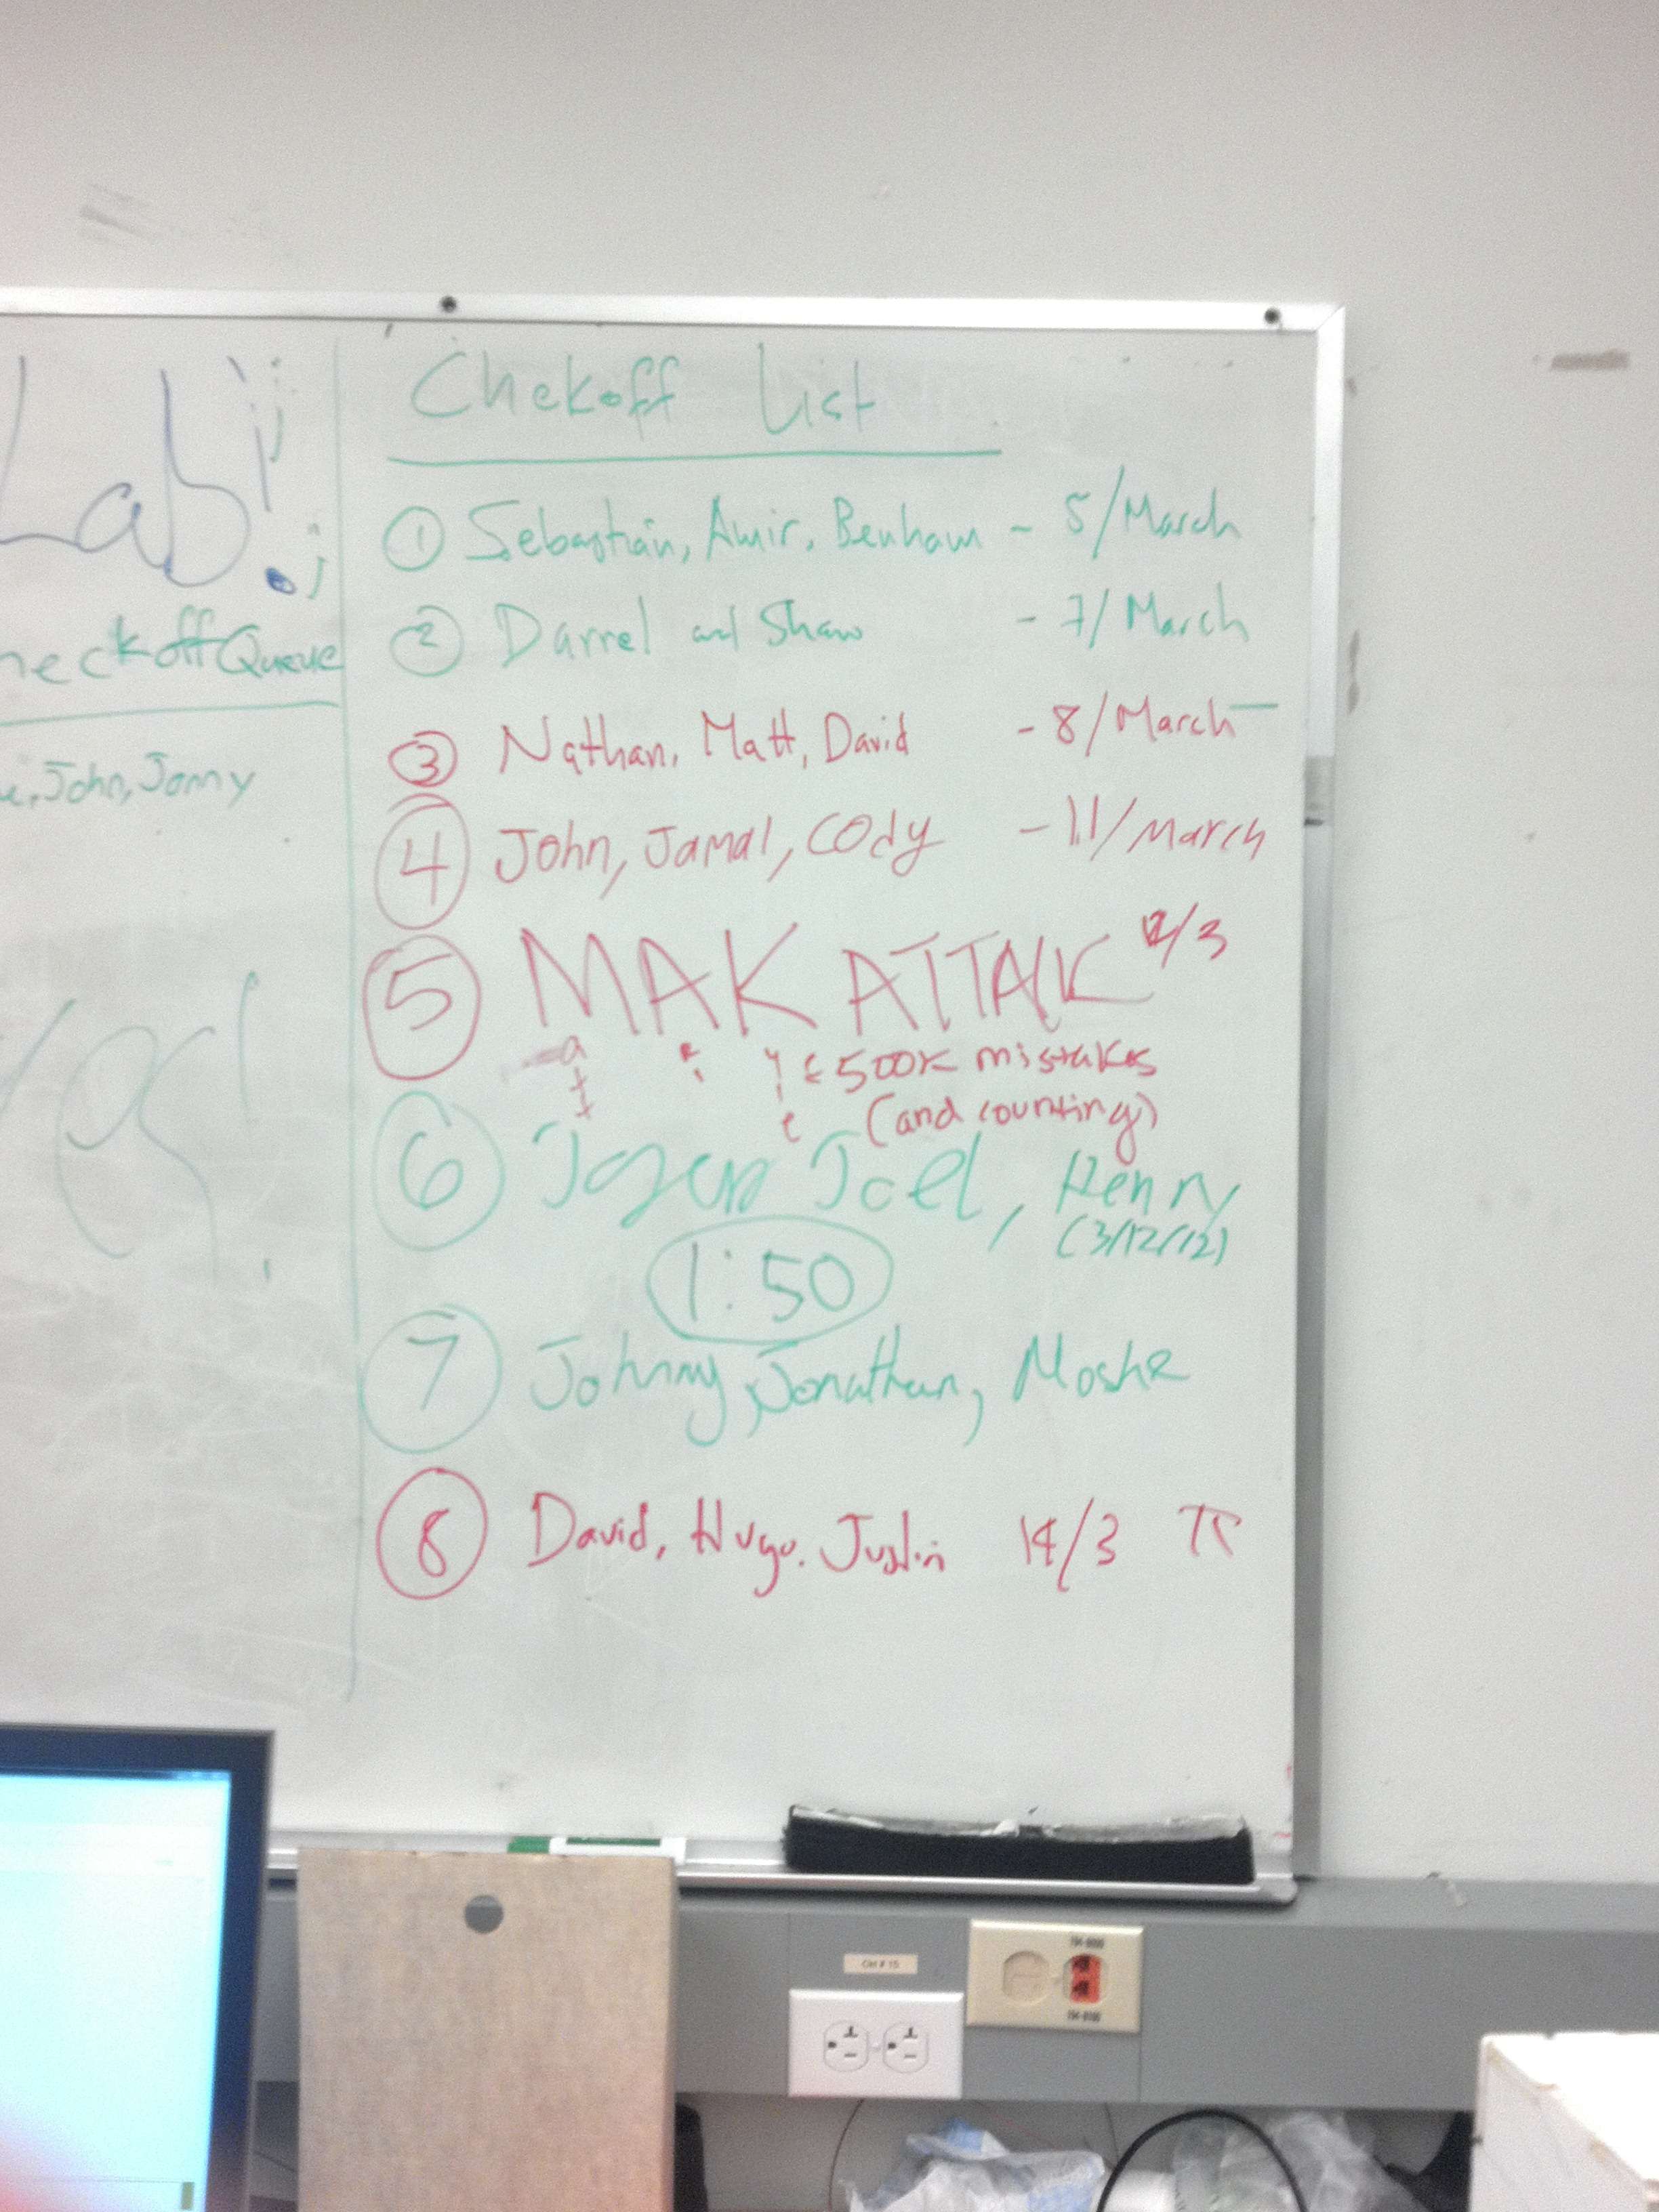 Lab!
heckoff Queue
John, Jonny
Chekoff List
① Sebastian, Amir, Benham - 5/March
② Darrel and Shaw - 7/March
③ Nathan, Matt, David - 8/March
④ John, Jamal, Cody - 11/March
⑤ MAK ATTAK 12/3
a
t
t
y
l
e
500k mistakes
(and counting)
⑥ Joel, Henry
(3/12/12)
1:50
⑦ Johnny, Jonathan, Moshe
⑧ David, Hugo, Justin 14/3 π
Ckt # 15